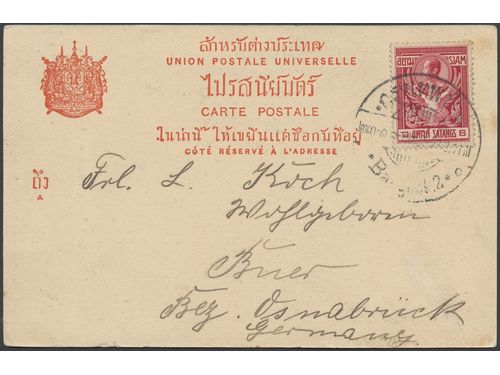 สำหรับต่างประเทศ
UNION POSTALE UNIVERSELLE
ไปรสนียบัตร์
CARTE POSTALE
ในน่านี้ให้เขียนแต่ชื่อกับที่อยู่
CÔTÉ RÉSERVÉ À L'ADRESSE
สยาม SIAM
๖ สตางค์ SATANGS 6
ถึง
Frl. L. Koch
Wohlgeboren
Buer
Bez. Osnabrück
Germany